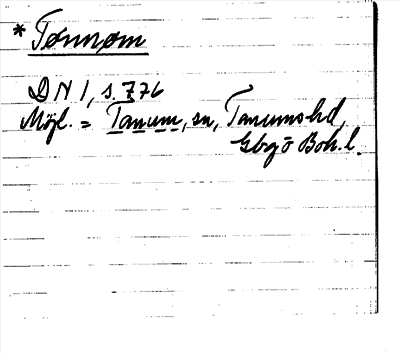 * Tønnøm
DN 1, s. 776
Möjl. = Tanum, sn, Tanums hd,
Gbgs o Boh. l.